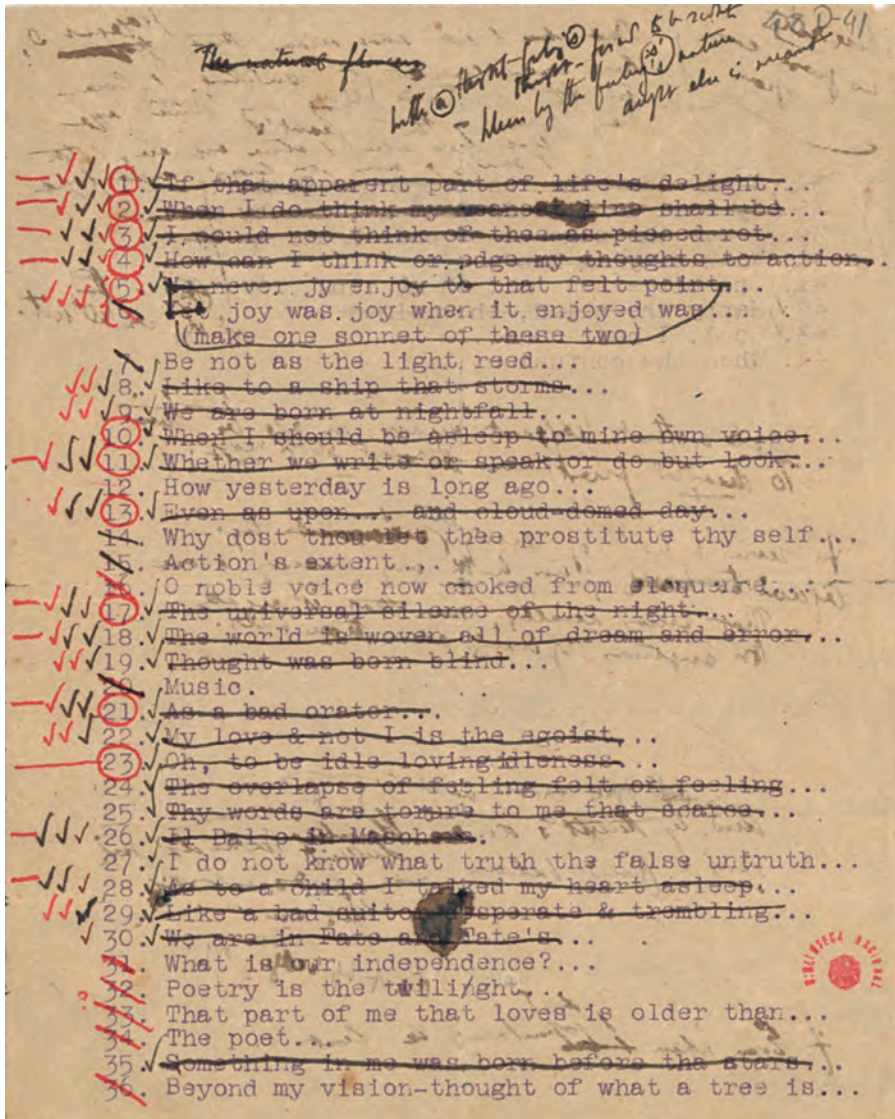 48D-41
The natural flowers
1. If that apparent part of life's delight...
2. When I do think my meanest line shall be...
3. I could not think of thee as pieced rot...
4. How can I think or edge my thoughts to action..
5. never jy enjoy to that felt point...
6. joy was joy when it enjoyed was...
(make one sonnet of these two)
7. Be not as the light reed...
8. Like to a ship that storms...
9. We are born at nightfall...
10. When I should be asleep to mine own voice...
11. Whether we write or speak or do but look...
12. How yesterday is long ago...
13. Even as upon... and cloud-domed day...
14. Why dost thou let thee prostitute thy self...
15. Action's extent...
16. O noble voice now choked from
17. The universal silence of the night...
18. The world is woven all of dream and error...
19. Thought was born blind...
20. Music.
21. As a bad orator...
22. My love & not I is the egoist...
23. Oh, to be idle loving idleness...
24. The overlapse of feeling felt on feeling
25. Thy words are torure to me that scarce...
26. Il Ballo in Maschera.
27. I do not know what truth the false untruth...
28. As to a child I talked my heart asleep...
29. Like a bad suitor desperate & trembling...
30. We are in Fate and Fate's...
31. What is our independence?...
32. Poetry is the twili/ght...
33. That part of me that loves is older than...
34. The poet....
35. Something in me was born before tha stars...
36. Beyond my vision-thought of what a tree is...
BIBLIOTECA NACIONAL